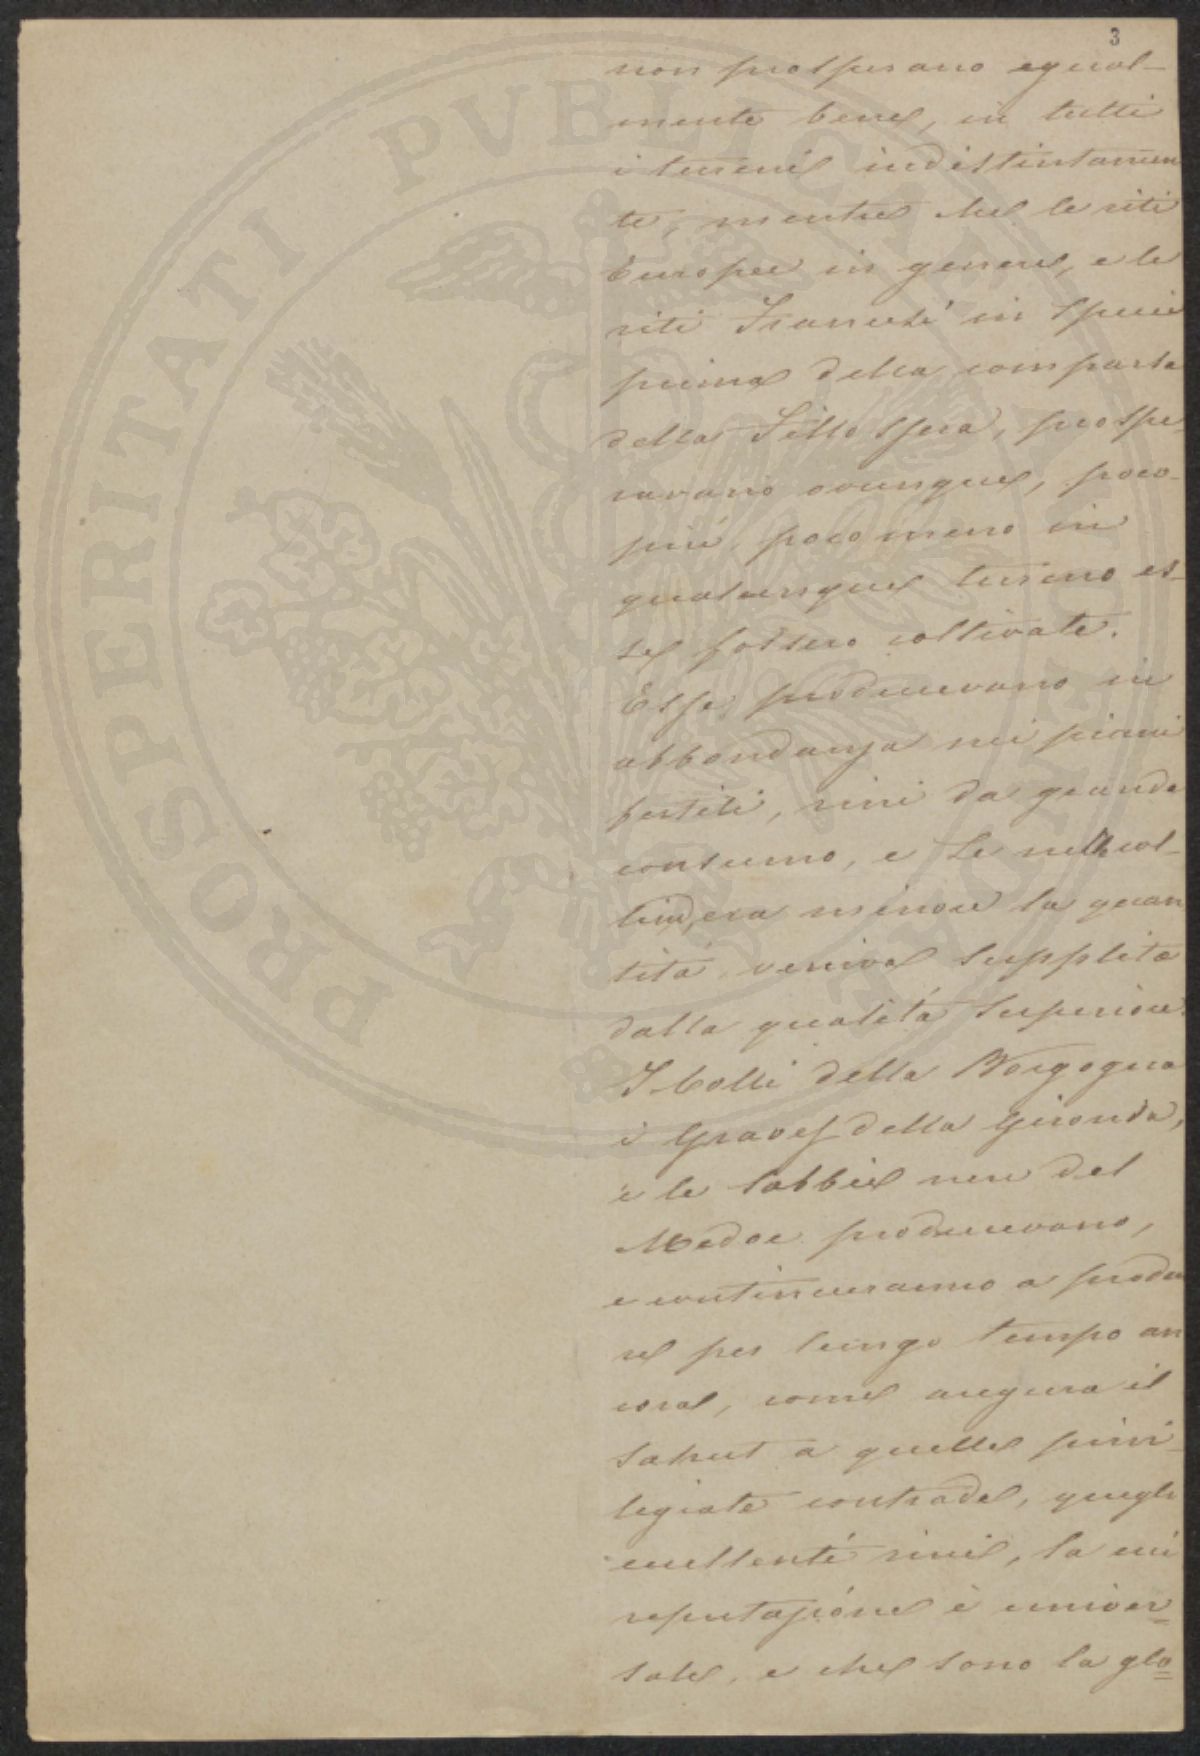 3
non prosperano egual-
mente bene, in tutti
i terreni indistintamen
te, mentre che le viti
Europee in genere, e le
viti Francesi in specie
prima della comparsa
della Fillossera, prospe-
ravano ovunque, poco
più, poco meno in
qualunque terreno es-
se fossero coltivate.
Esse producevano in
abbondanza nei piani
fertili, vini da grande
consumo, e se nelle col-
line, era minore la quan
tità veniva supplita
dalla qualità superiore.
I Colli della Borgogna
i Graves della Gironda,
e le sabbie nere del
Medoc producevano,
e continueranno a produr
re per lungo tempo an
cora, come augura il
Sahut a quelle privi-
legiate contrade, quegli
eccellenti vini, la cui
reputazione è univer=
sale, e che sono la glo=
PROSPERITATI PVBLICAE